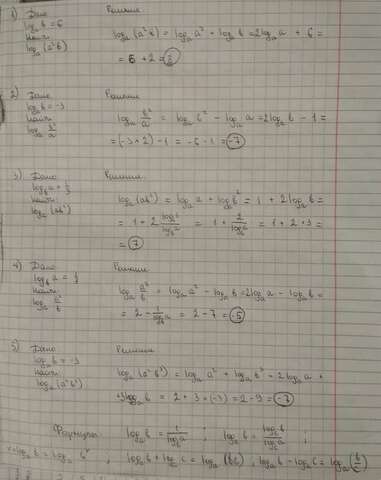 1) Дано
log_a b = 6
Найти
log_a (a²b)
Решение
log_a (a²b) = log_a a² + log_a b = 2log_a a + 6 =
= 6 + 2 = 8
2) Дано
log_a b = -3
Найти
log_a b²/a
Решение
log_a b²/a = log_a b² - log_a a = 2log_a b - 1 =
= (-3 * 2) - 1 = -6 - 1 = -7
3) Дано
log_b a = 1/3
Найти
log_a (ab²)
Решение
log_a (ab²) = log_a a + log_a b² = 1 + 2log_a b =
= 1 + 2 log_b b/log_b a = 1 + 2/log_b a = 1 + 2 * 3 =
= 7
4) Дано
log_b a = 1/7
Найти
log_a a²/b
Решение
log_a a²/b = log_a a² - log_a b = 2log_a a - log_a b =
= 2 - 1/log_b a = 2 - 7 = -5
5) Дано
log_a b = -3
Найти
log_a (a²b³)
Решение
log_a (a²b³) = log_a a² + log_a b³ = 2log_a a +
+ 3log_a b = 2 + 3 * (-3) = 2 - 9 = -7
Формулы: log_a b = 1/log_b a ; log_a b = log_c b/log_c a ;
log_a b = log_a b^x , log_a b + log_a c = log_a (bc) , log_a b - log_a c = log_a (b/c)